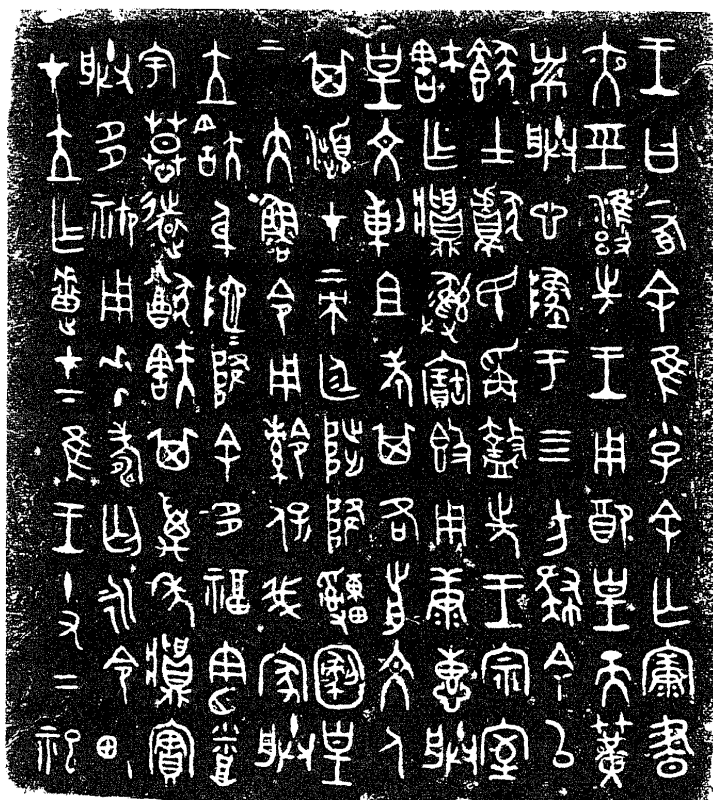 王曰有余隹小子余亡康晝
夜巠雝先王用配皇天簧
黹朕心墜于四方肆余以
餕士獻民爯盩先王宗室
㝬作𪔉彝寶簋用康惠朕
皇文剌且考其各前文人
其瀕在帝廷陟降申𤕌皇
帝大魯令用令保我家朕
立㝬身阤=降余多福憲烝
宇慕遠猷㝬其萬年𪔉實
朕多禦用𠦪壽匄永令畯
在立乍疐在下隹王十又二祀